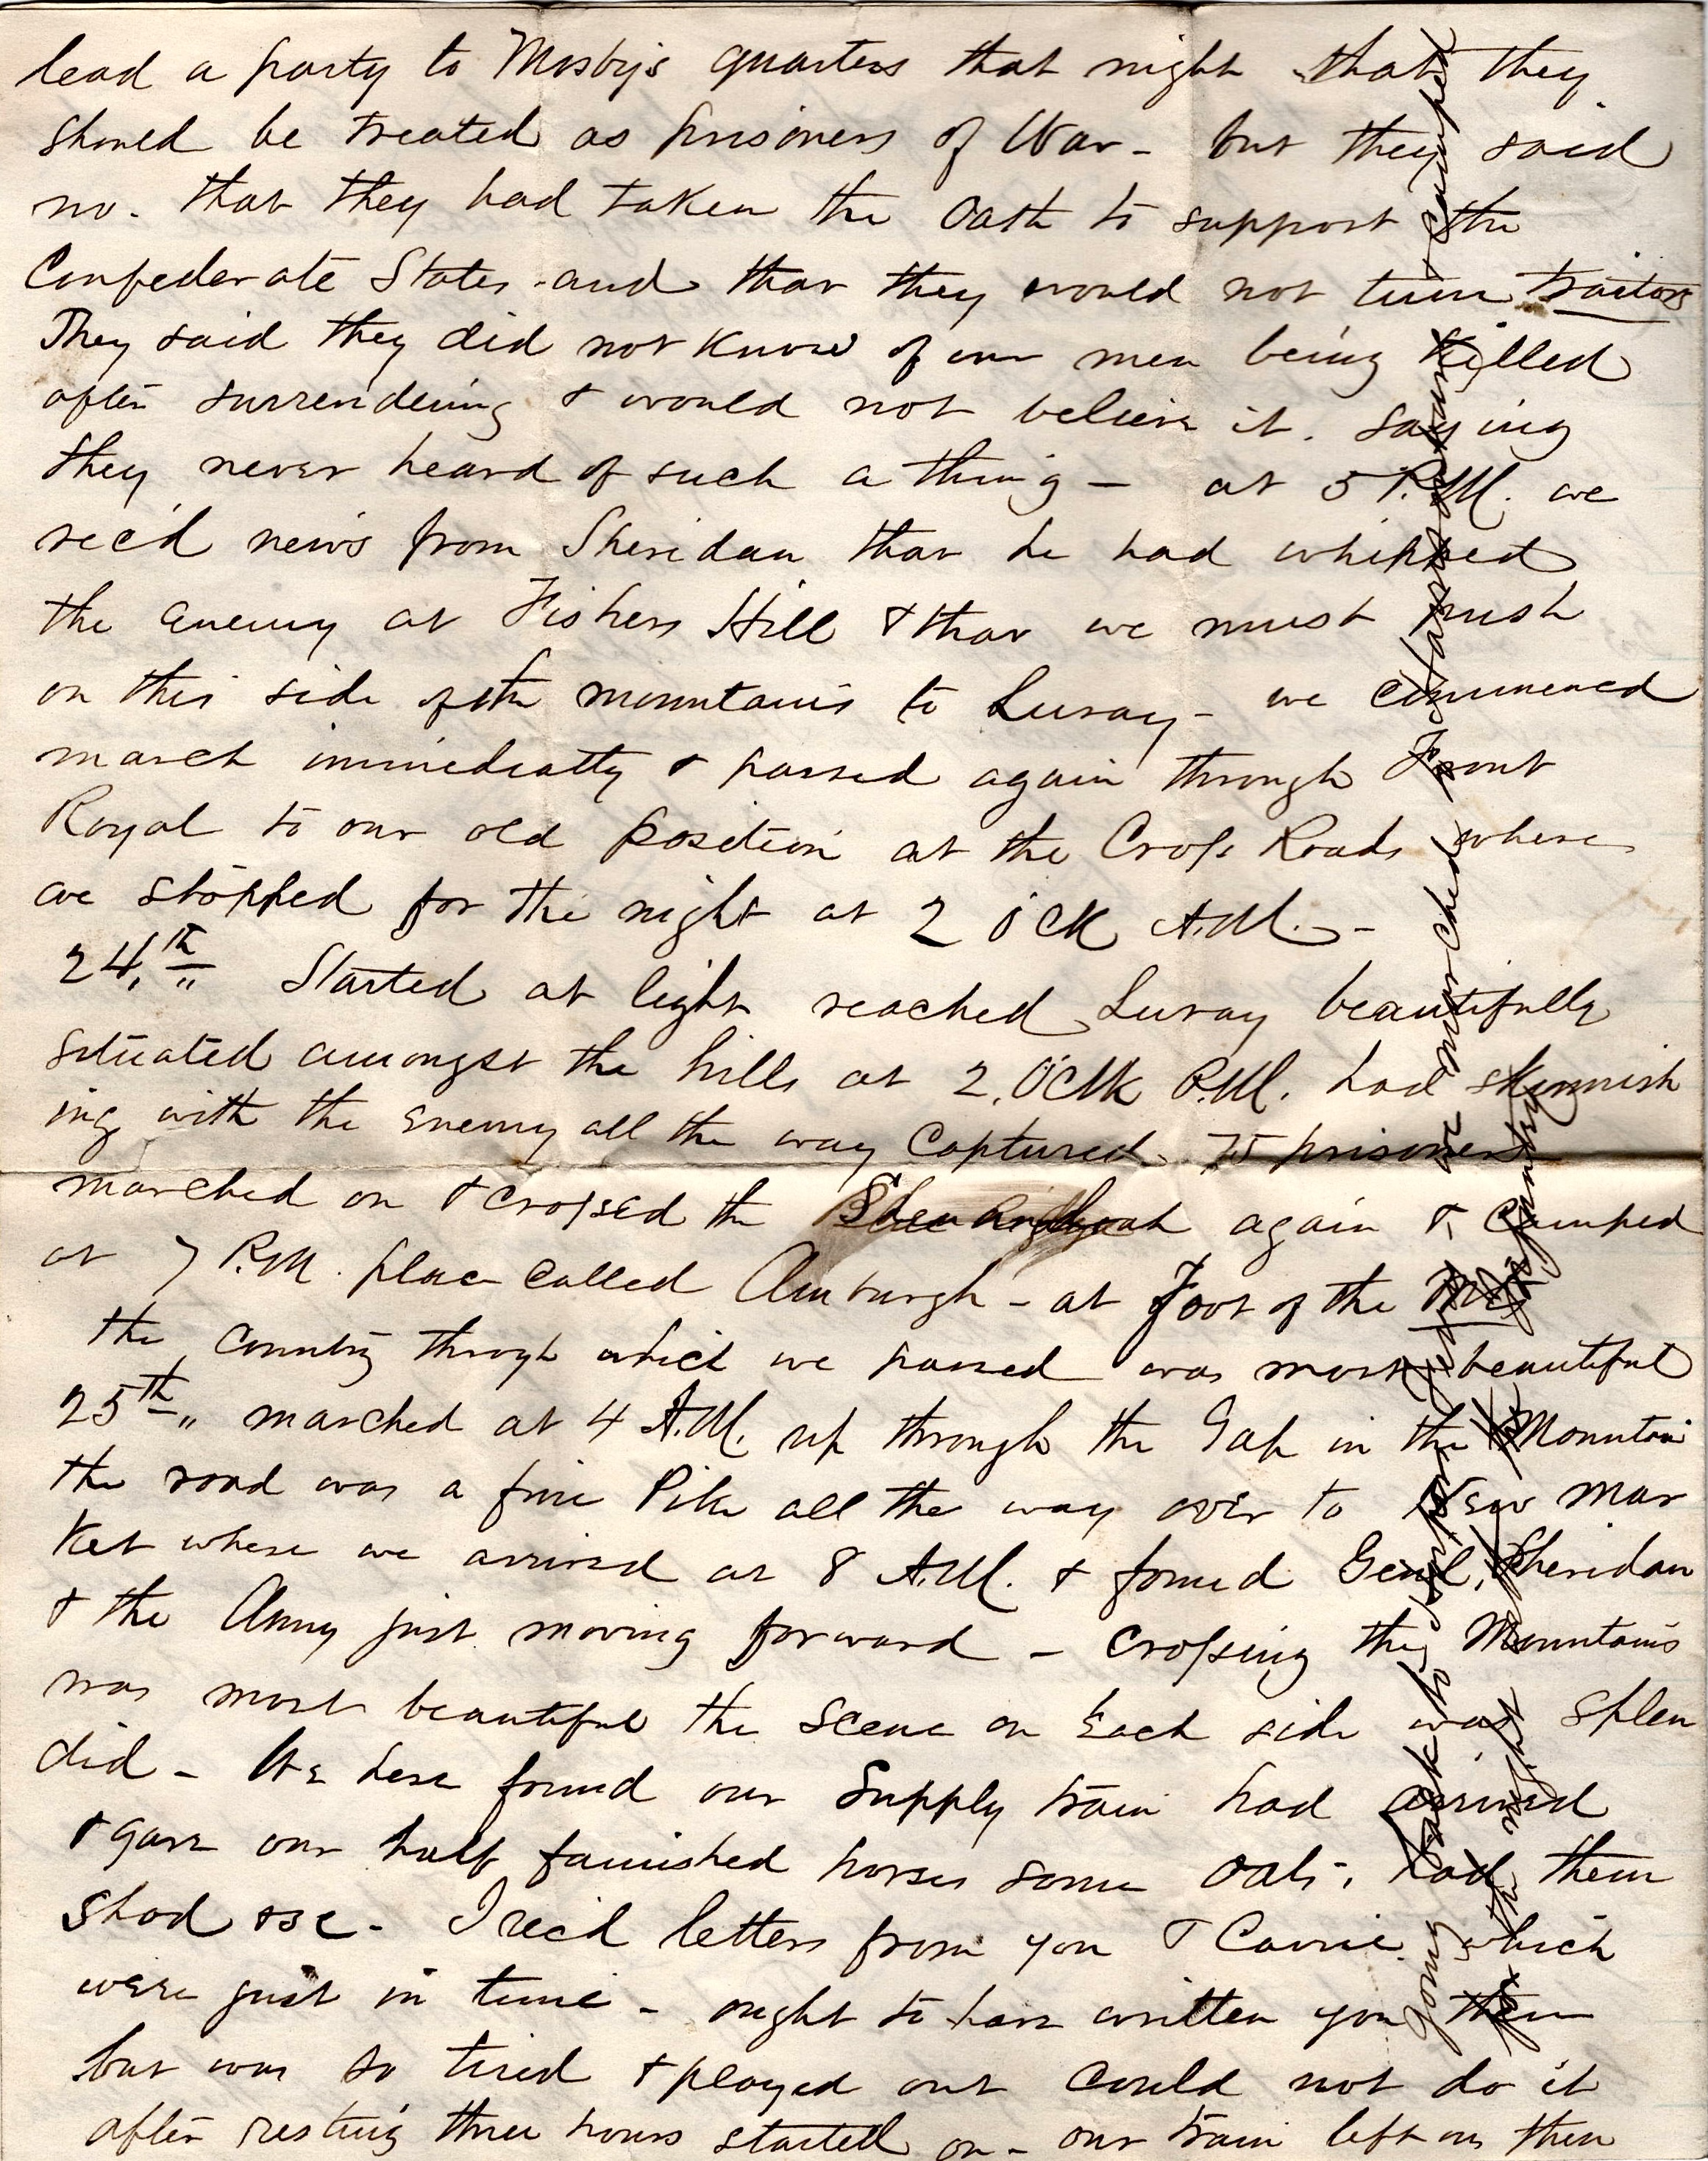 lead a party to Mosby's quarters that night that they
should be treated as prisoners of War - but they said
no. that they had taken the Oath to support the
Confederate States and that they would not turn traitors
They said they did not know of our men being killed
after surrendering & would not believe it. saying
they never heard of such a thing - at 5 P.M. we
rec'd news from Sheridan that he had whipped
the enemy at Fishers Hill & that we must push
on this side of the mountains to Luray - we commenced
march immediatly & passed again through Front
Royal to our old position at the Cross Roads where
we stopped for the night at 2 O'CK A.M. -
24.th Started at light reached Luray beautifully
situated amongst the hills at 2. O'Clk P.M. had skirmish
ing with the enemy all the way Captured 75 prisoners
marched on & crossed the Shenandoah again & camped
at 7 P.M. place called Amburgh - at Foot of the
the Country through which we passed was most beautiful
25th " marched at 4 A.M. up through the Gap in the Mountain
the road was a fine Pike all the way over to New Mar
ket where we arrived at 8 A.M. & found Genl. Sheridan
& the Army just moving forward - Crossing the Mountains
was most beautiful the scene on Each side was splen
did - We here found our Supply train had arrived
& gave our half famished horses some Oats, had them
shod &c - I rec'd letters from you & Carrie which
were just in time - ought to have written you then
but was so tired & played out could not do it
after resting three hours started on - our train left us then
going back to Harpers we marched
for the night